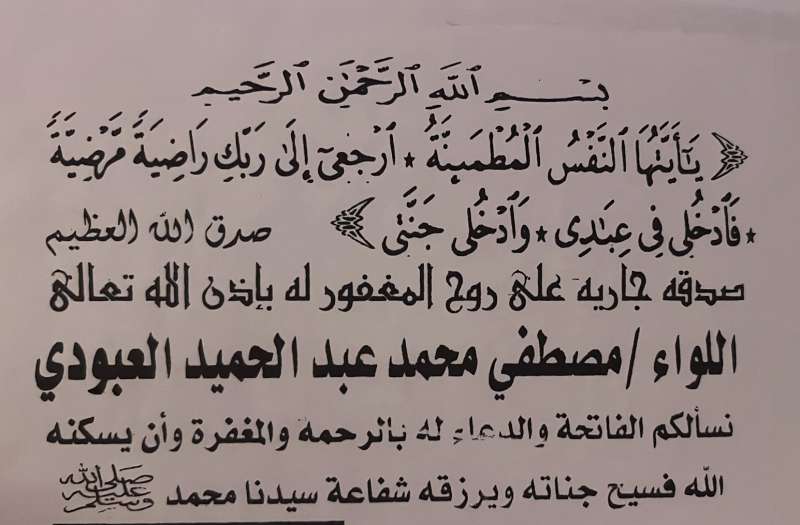 بِسْمِ ٱللَّهِ ٱلرَّحْمَٰنِ ٱلرَّحِيمِ
﴿ يَٰٓأَيَّتُهَا ٱلنَّفْسُ ٱلْمُطْمَئِنَّةُ * ٱرْجِعِىٓ إِلَىٰ رَبِّكِ رَاضِيَةً مَّرْضِيَّةً
* فَٱدْخُلِى فِى عِبَٰدِى * وَٱدْخُلِى جَنَّتِى ﴾ صدق الله العظيم
صدقه جاريه على روح المغفور له بإذن الله تعالى
اللواء / مصطفي محمد عبد الحميد العبودي
نسألكم الفاتحة والدعاء له بالرحمه والمغفرة وأن يسكنه
الله فسيح جناته ويرزقه شفاعة سيدنا محمد صلى الله عليه وسلم